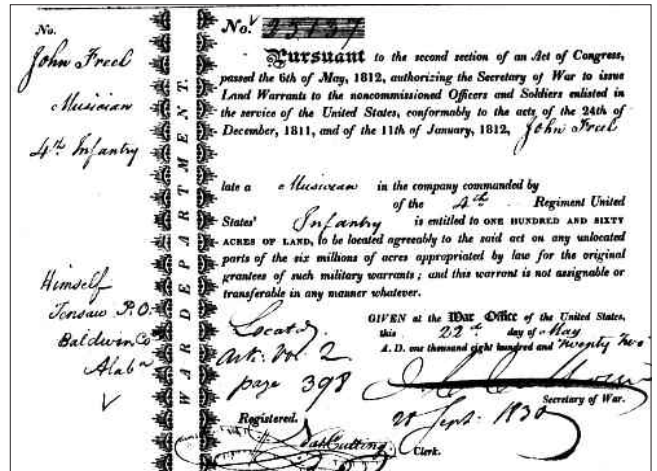 No.
John Freel
Musician
4th Infantry
Himself
Tensaw P.O.
Baldwin Co
Alaba
WAR DEPARTMENT.
No. 25137
Pursuant to the second section of an Act of Congress,
passed the 6th of May, 1812, authorizing the Secretary of War to issue
Land Warrants to the noncommissioned Officers and Soldiers enlisted in
the service of the United States, conformably to the acts of the 24th of
December, 1811, and of the 11th of January, 1812, John Freel
late a Musician in the company commanded by
of the 4th Regiment United
States' Infantry is entitled to ONE HUNDRED AND SIXTY
ACRES OF LAND, to be located agreeably to the said act on any unlocated
parts of the six millions of acres appropriated by law for the original
grantees of such military warrants; and this warrant is not assignable or
transferable in any manner whatever.
GIVEN at the War Office of the United States,
this 22d day of May
A. D. one thousand eight hundred and Twenty Two
Located
Ark: Vol. 2
page 398
Secretary of War.
28 Sept. 1830
Registered.
Cutting
Clerk.